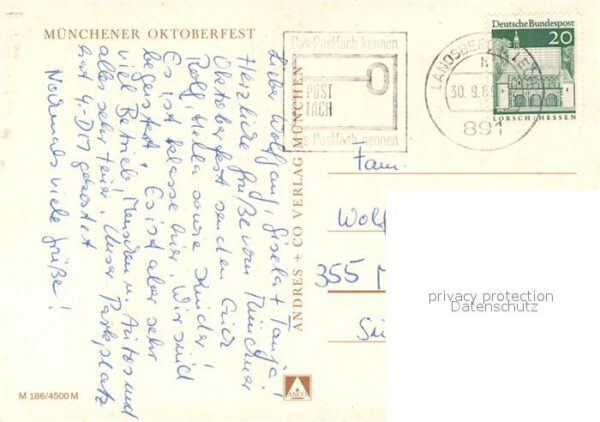 MÜNCHENER OKTOBERFEST
Lieber Wolfgang, Gisela + Tanja!
Herzliche Grüße vom Münchner
Oktoberfest senden Euch
Rolf, Hella sowie Kinder!
Es ist klasse hier. Wir sind
begeistert. Es ist aber sehr
viel Betrieb, Menschen u. Autos und
alles sehr teuer. Unser Parkplatz
hat 4,- DM gekostet
Nochmals viele Grüße!
M 186/4500 M
ANDRES + CO VERLAG MÜNCHEN
ANCO
Das Postfach kennen
POST
FACH
das Postfach nennen
LANDSBERG LECH
30. 9. 6
891
Deutsche Bundespost
20
LORSCH/HESSEN
Fam.
Wolf
355 M
privacy protection
Datenschutz